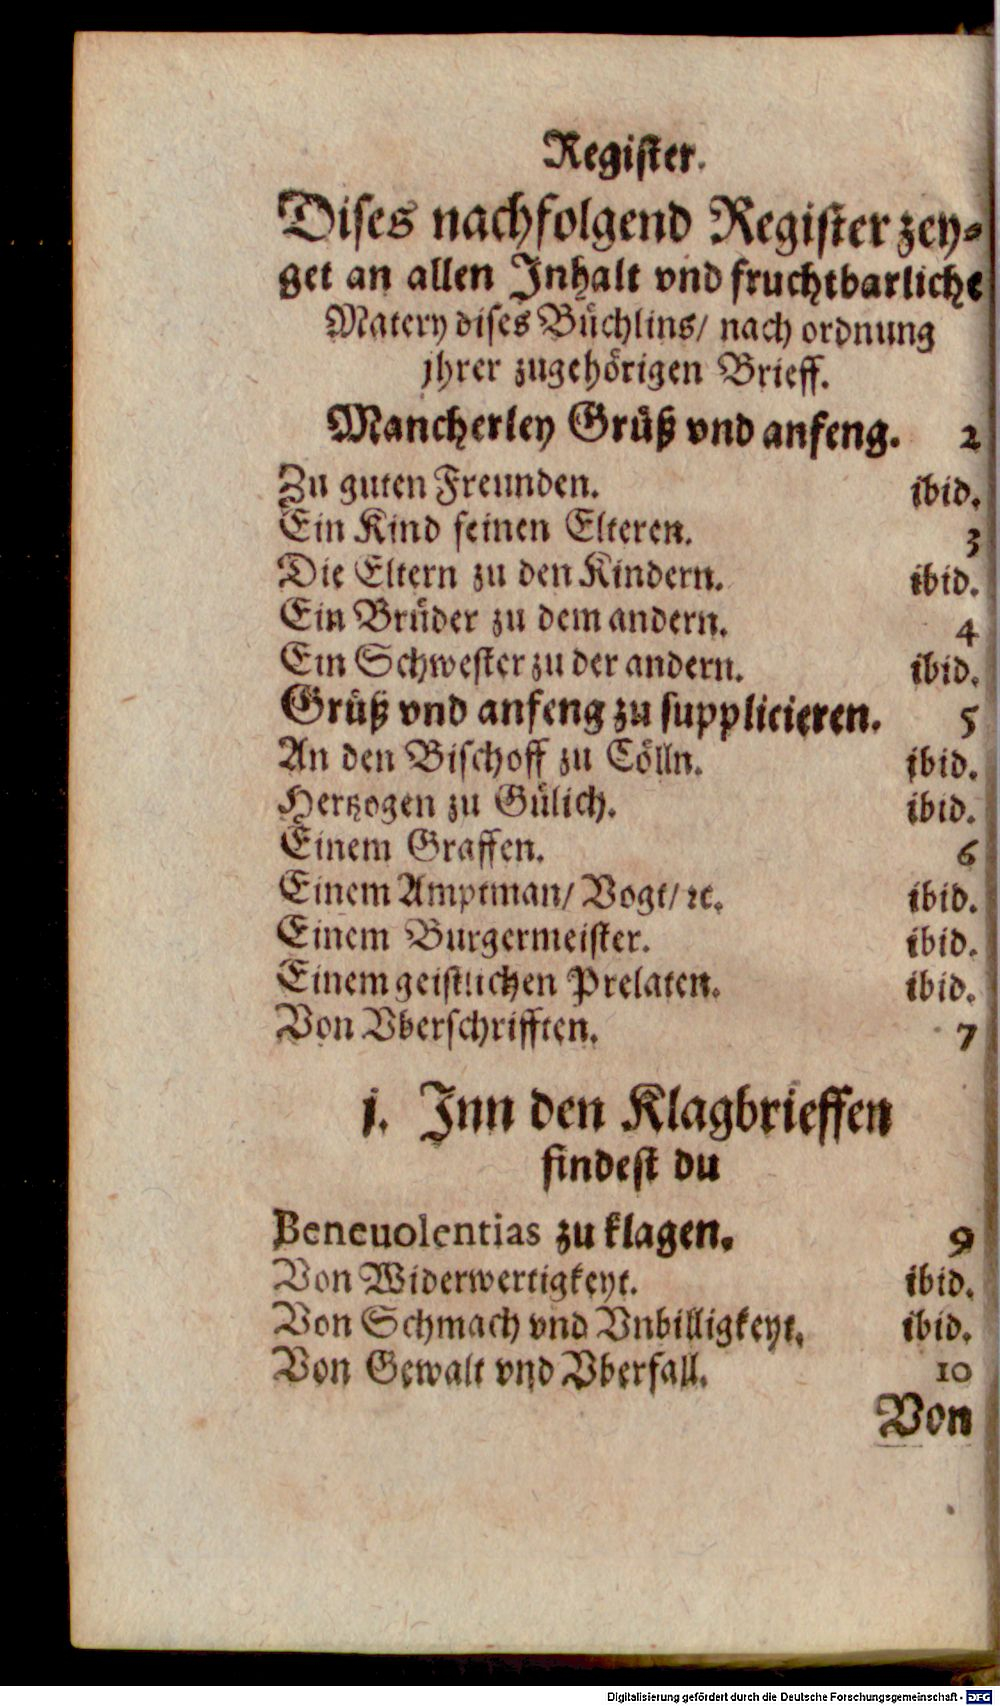 Register.
Dises nachfolgend Register zey-
get an allen Inhalt vnd fruchtbarliche
Matery dises Büchlins/ nach ordnung
jhrer zugehörigen Brieff.
Mancherley Grüß vnd anfeng. 2
Zu guten Freunden. ibid.
Ein Kind seinen Elteren. 3
Die Eltern zu den Kindern. ibid.
Ein Brüder zu dem andern. 4
Ein Schwester zu der andern. ibid.
Grüß vnd anfeng zu supplicieren. 5
An den Bischoff zu Cölln. ibid.
Hertzogen zu Gülich. ibid.
Einem Graffen. 6
Einem Amptman/ Vogt/ ꝛc. ibid.
Einem Burgermeister. ibid.
Einem geistlichen Prelaten. ibid.
Von Vberschrifften. 7
j. Inn den Klagbrieffen
findest du
Beneuolentias zu klagen. 9
Von Widerwertigkeyt. ibid.
Von Schmach vnd Vnbilligkeyt. ibid.
Von Gewalt vnd Vberfall. 10
Von
Digitalisierung gefördert durch die Deutsche Forschungsgemeinschaft - DFG